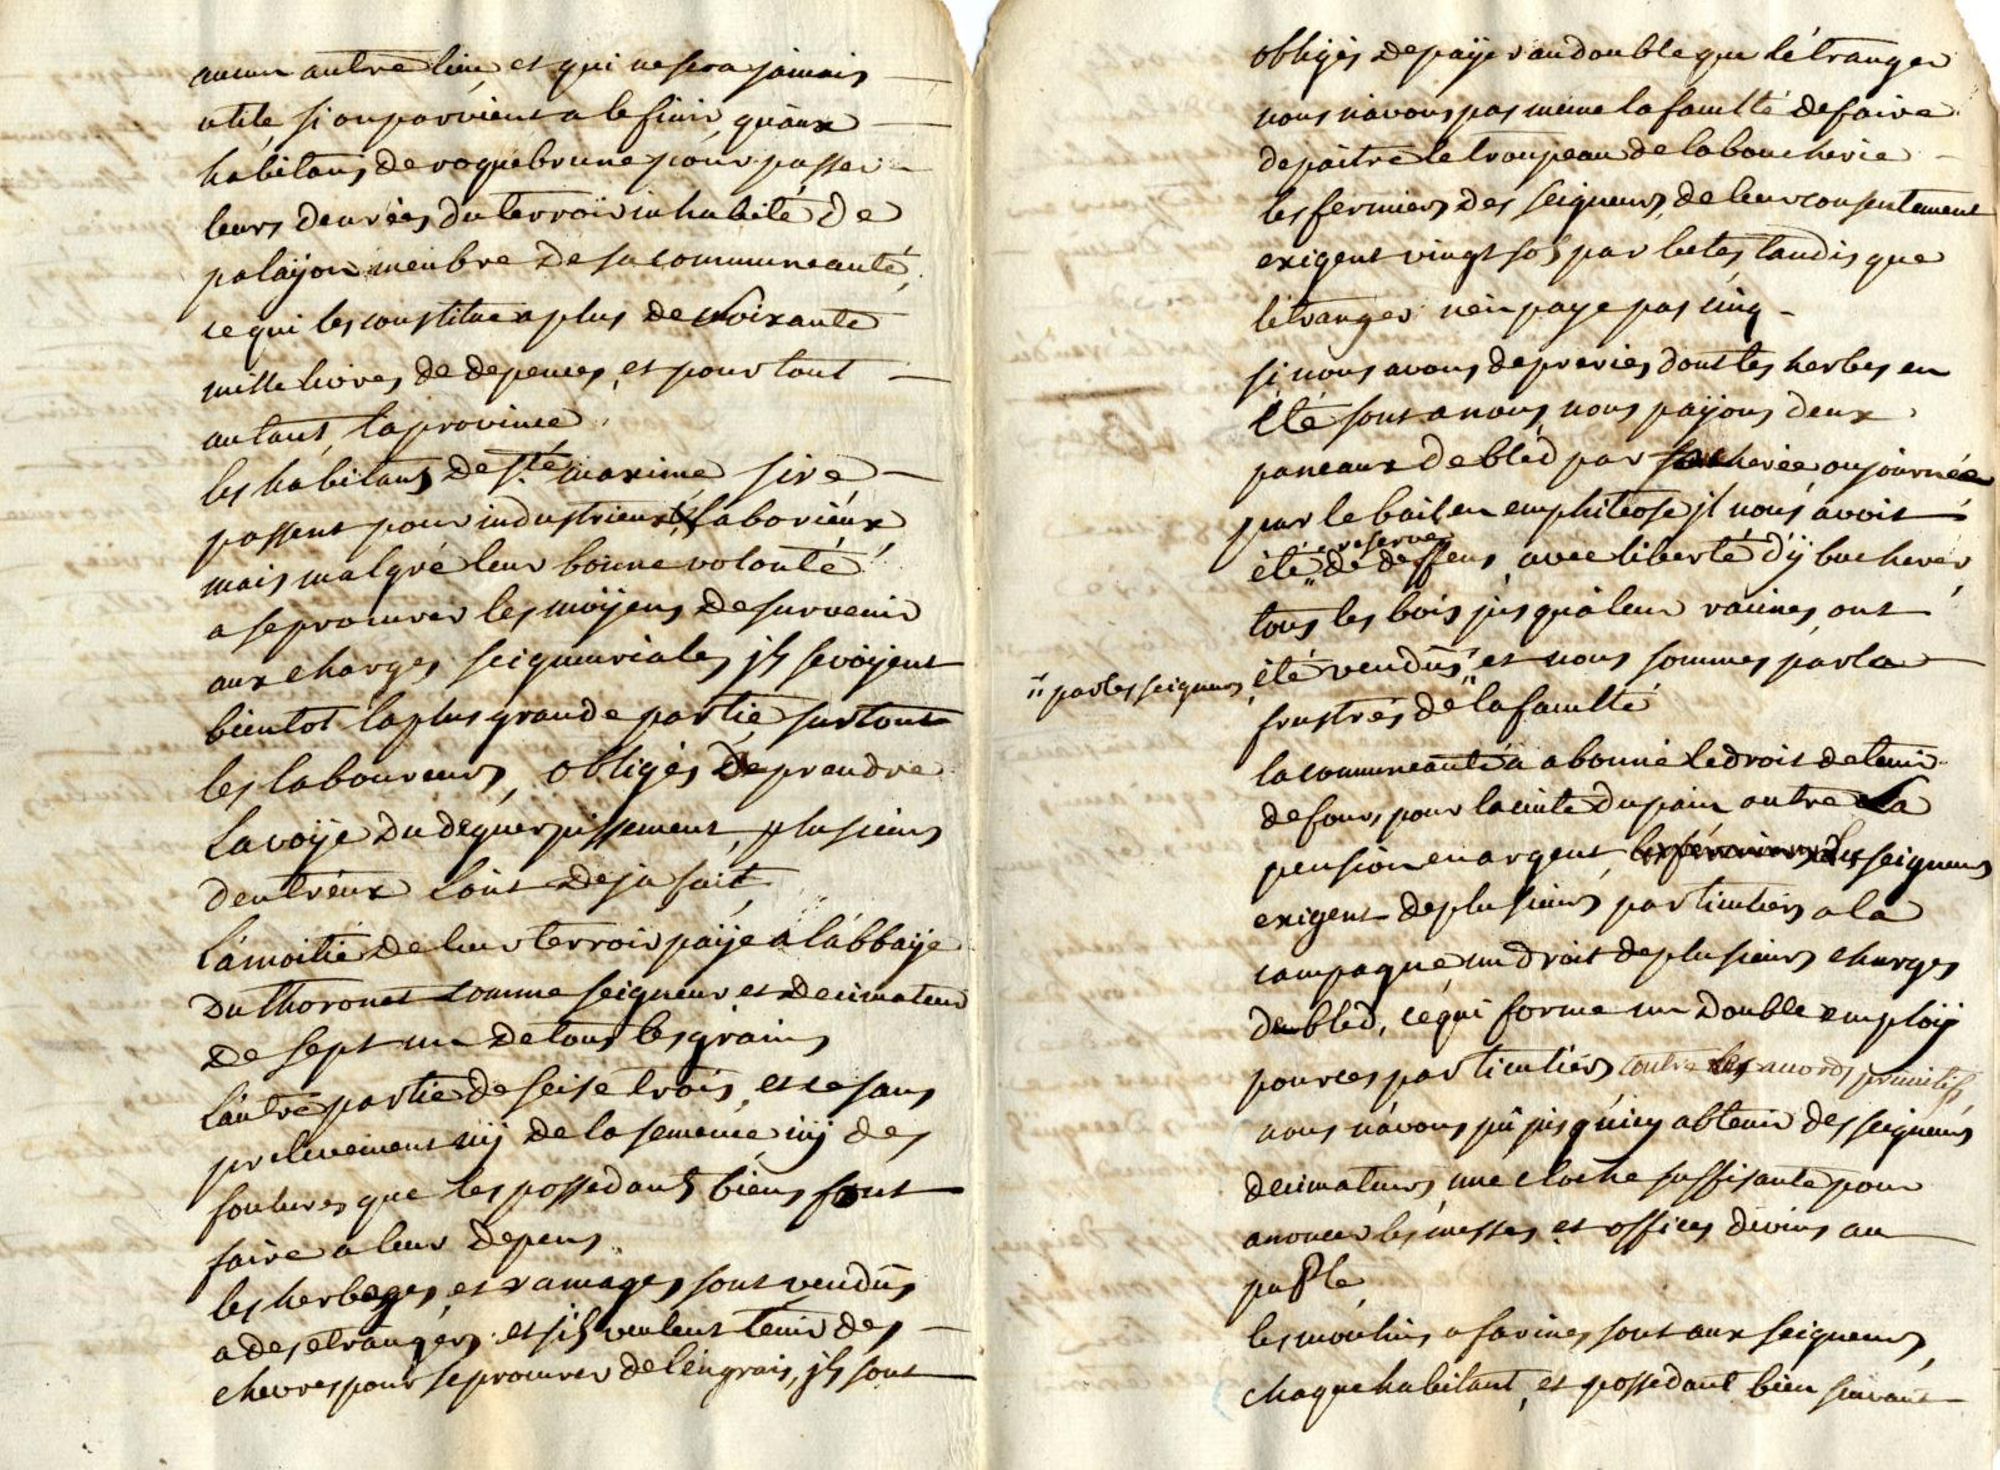 aucun autre lieu, et qui ne sera jamais
utile si on parvient a le finir, qu'aux
habitans de roquebrune pour passer
leurs denrées du terroir inhabité de
palaÿon membre de sa communeauté,
ce qui les constitue a plus de soixante
mille livres de depences, et pour tout
autant, la province
les habitans de s.te maxime, sire
passent pour industrieux & laborieux
mais malgré leur bonne volonté
a se procurer les moÿens de survenir
aux charges seigneuriales, jls se voÿent
bientot la plus grande partie, surtout
les laboureurs, obligés de prendre
la voÿe du deguerpissement, plusieurs
d'entreux l'ont deja fait,
la moitié de leur terroir paÿe a l'abbaÿe
du thoronet comme seigneur et decimateur
de sept un de tous les grains
l'autre partie de seise trois, et ce sans
prelevement nÿ de la semence, nÿ des
foulures que les possedants biens font
faire a leur depens
les herbages, et ramages sont vendus
a des etrangers. et s'ils veulent tenir des
chevres pour se procurer de l'engrais, jls sont
obligés de paÿer au double que l'étranger
nous n'avons pas meme la faculté de faire
depaitre le troupeau de la boucherie
les fermiers des seigneurs, de leur consentement
exigent vingt sols par betes tandis que
letranger n'en paye pas cinq
si nous avons de preries dont les herbes en
été sont a nous, nous paÿons deux
paneaux de bled par soucherée ou journée
par le bail en emphiteose jl nous avoit
été " reservé de deffens, avec liberté d'ÿ bucherer,
tous les bois jusqu'a leur racines, ont
été vendus " et nous sommes par la
" par les seigneurs,
frustrés de la faculté
la communeauté a abonné le droit de tenir
de fours, pour la cuite du pain outre la
pension en argent, les seigneurs
exigent de plusieurs particuliers a la
campagne un droit de plusieurs charges
de bled, ce qui forme un double emploÿ
pour ces particuliers contre les accords primitifs
nous n'avons pû jusqu'icy obtenir des seigneurs
decimateurs, une cloche suffisante pour
anoncer les messes, et offices divins au
puple
les moulins a farines, sont aux seigneurs,
chaque habitant, et possedant bien suivant